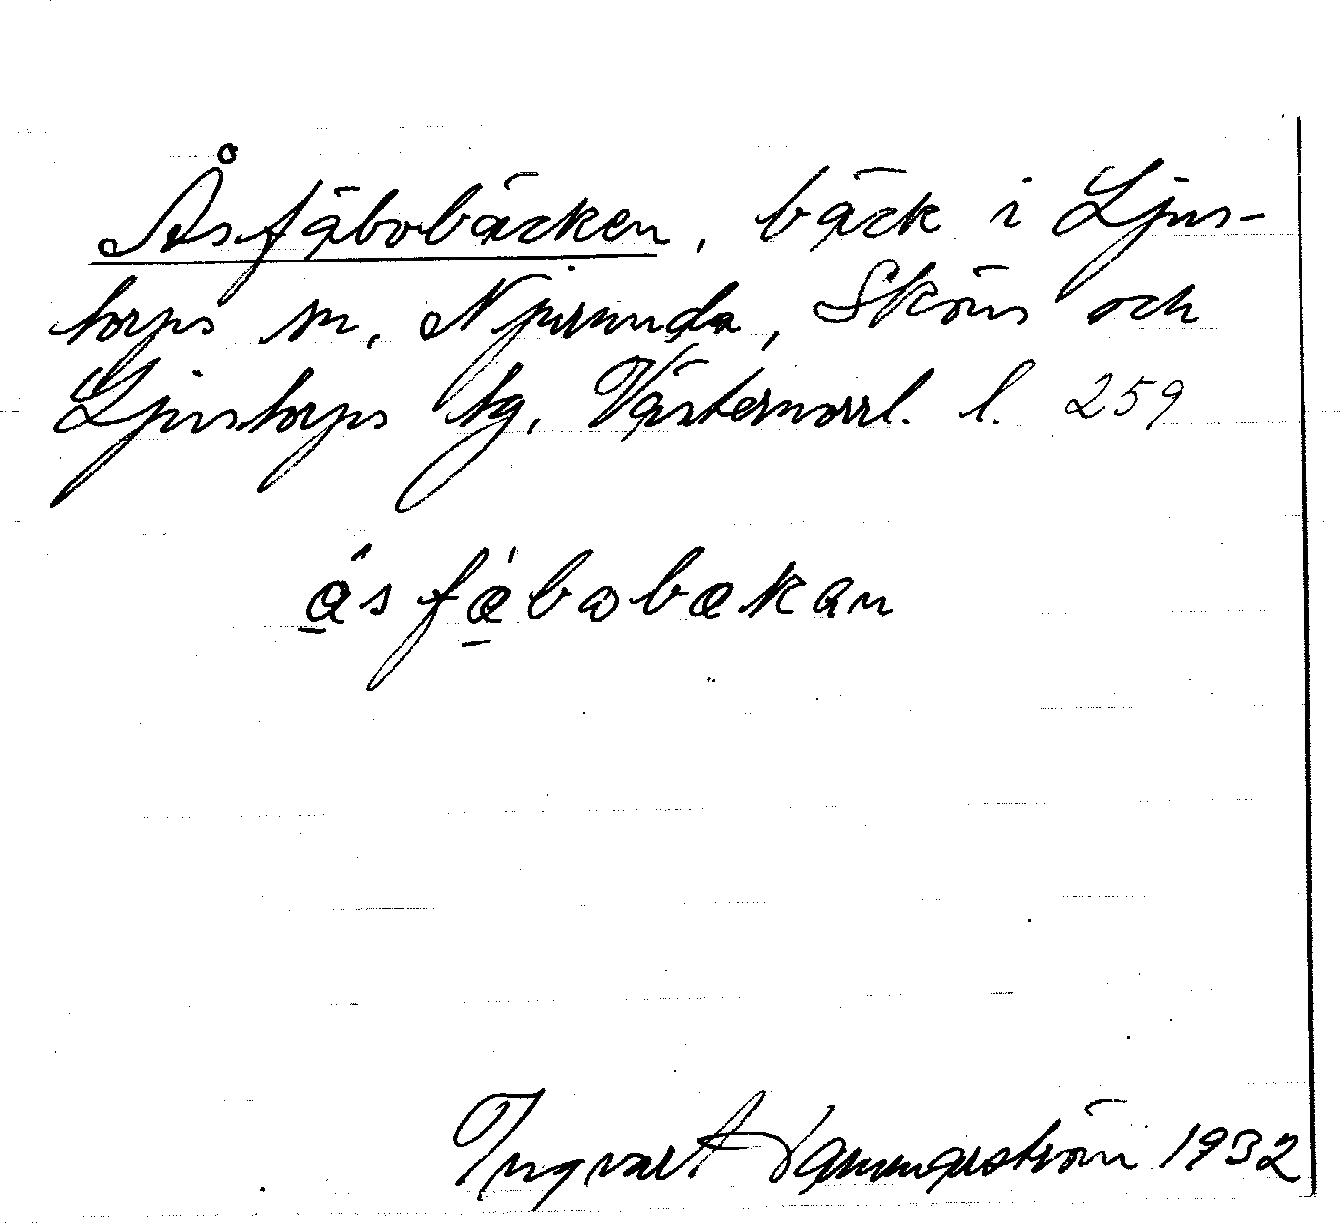 Åsfäbobäcken, bäck i Ljus-
torps sn, Njurunda, Sköns och
Ljustorps tg, Västernorrl. l. 259
åsfæbobækan
Ingvart Hammarström 1932